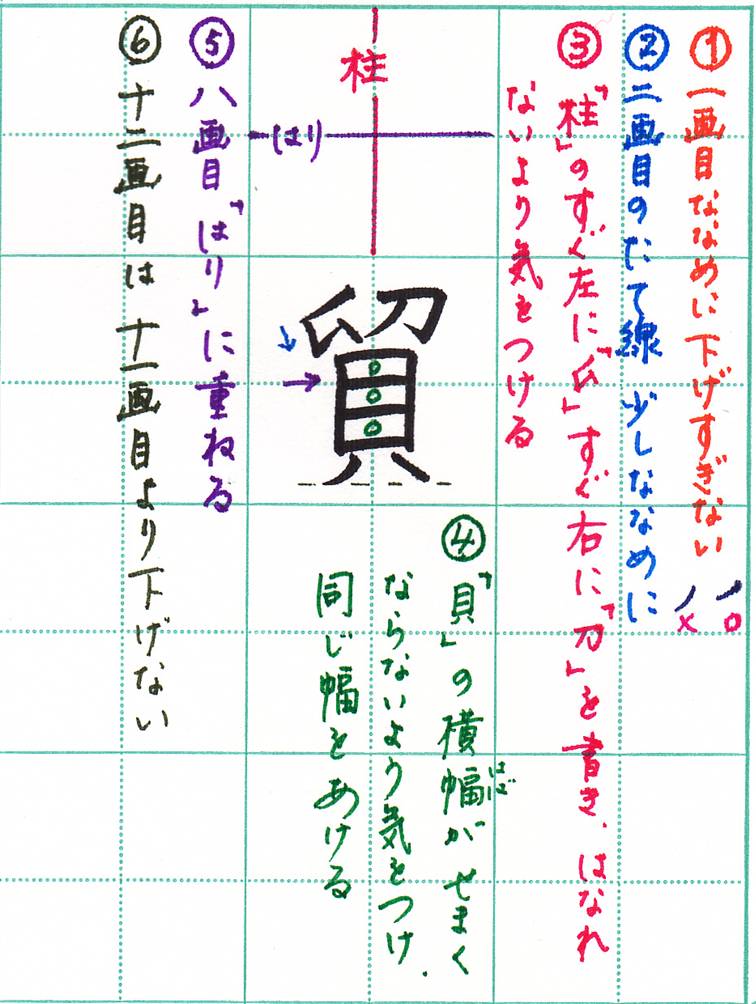 ① 一画目ななめに下げすぎない
○
×
② 二画目のたて線 少しななめに
③ 「柱」のすぐ左に「𠂎」すぐ右に「刀」を書き、はなれ
ないよう気をつける
柱
はり
貿
④ 「貝」の横幅がせまく
はば
ならないよう気をつけ、
同じ幅をあける
⑤ 八画目「はり」に重ねる
⑥ 十二画目は 十一画目より下げない